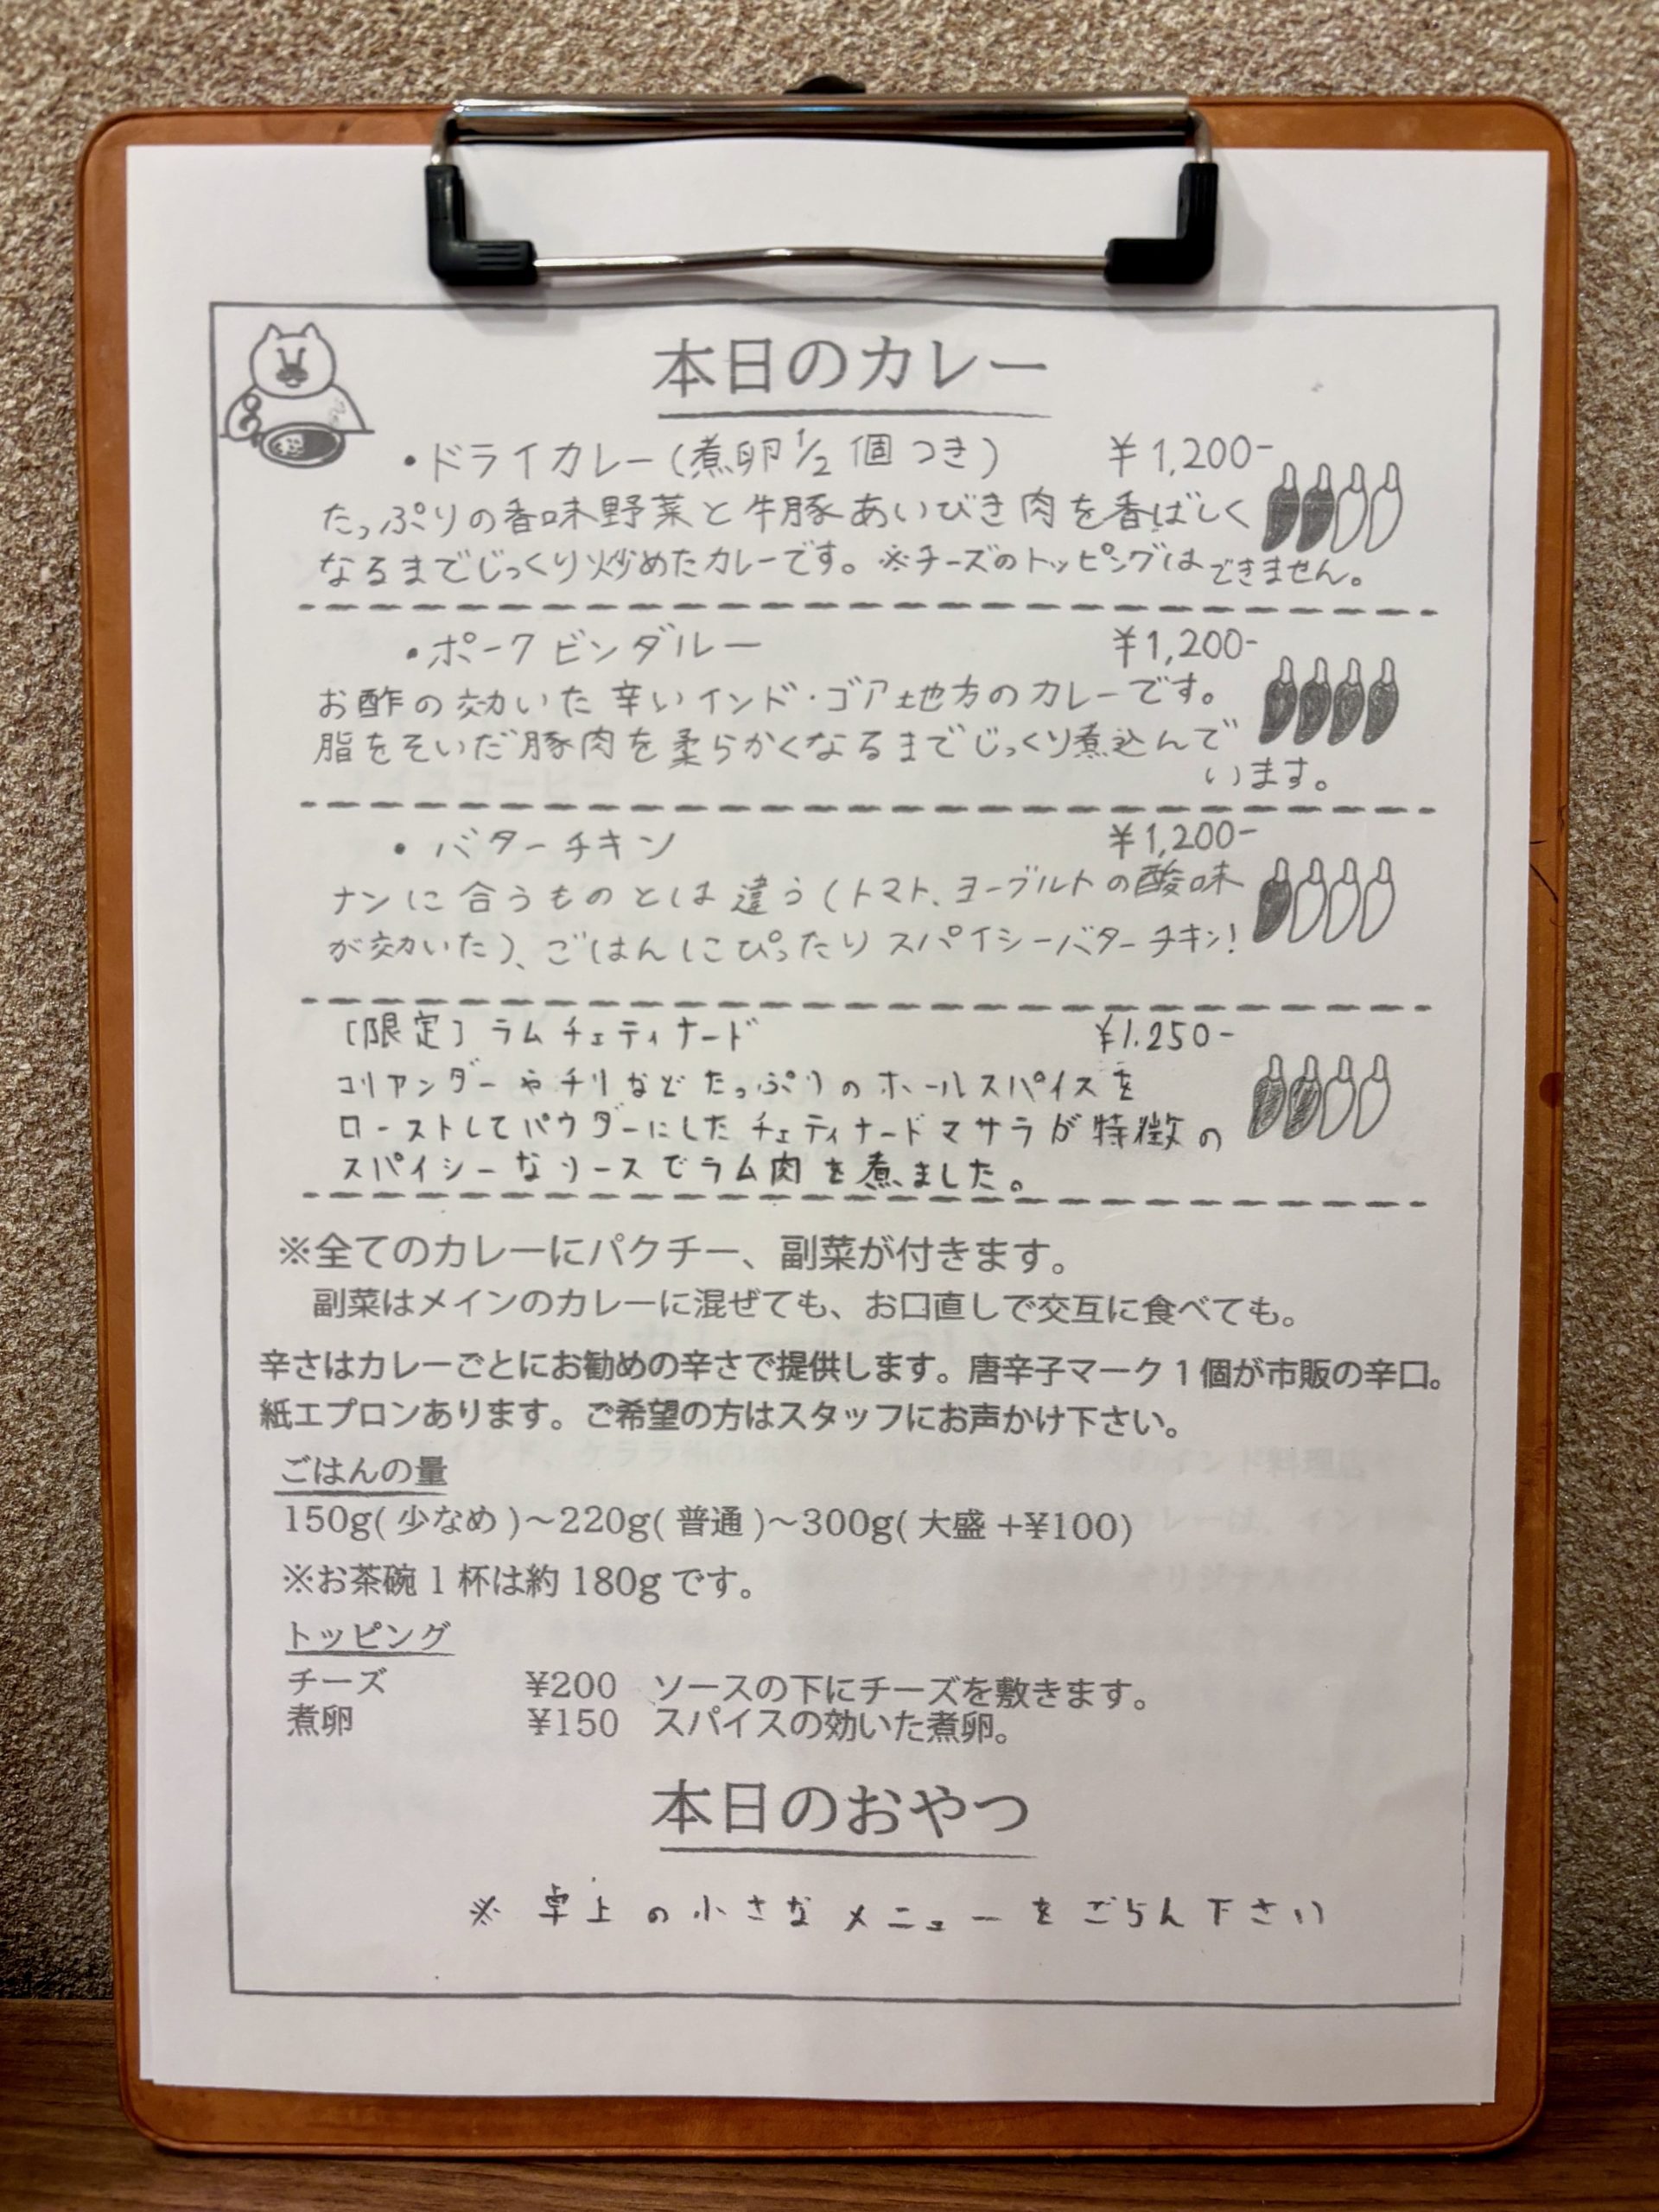 本日のカレー
・ドライカレー(煮卵1/2個つき) ¥1,200-
たっぷりの香味野菜と牛豚あいびき肉を香ばしく
なるまでじっくり炒めたカレーです。※チーズのトッピングはできません。
・ポークビンダルー ¥1,200-
お酢の効いた辛いインド・ゴア地方のカレーです。
脂をそいだ豚肉を柔らかくなるまでじっくり煮込んで
います。
・バターチキン ¥1,200-
ナンに合うものとは違う(トマト、ヨーグルトの酸味
が効いた)、ごはんにぴったりスパイシーバターチキン!
[限定]ラムチェティナード ¥1.250-
コリアンダーやチリなどたっぷりのホールスパイスを
ローストしてパウダーにしたチェティナードマサラが特徴の
スパイシーなソースでラム肉を煮ました。
※全てのカレーにパクチー、副菜が付きます。
副菜はメインのカレーに混ぜても、お口直しで交互に食べても。
辛さはカレーごとにお勧めの辛さで提供します。唐辛子マーク1個が市販の辛口。
紙エプロンあります。ご希望の方はスタッフにお声かけ下さい。
ごはんの量
150g(少なめ)~220g(普通)~300g(大盛+¥100)
※お茶碗1杯は約180gです。
トッピング
チーズ ¥200 ソースの下にチーズを敷きます。
煮卵 ¥150 スパイスの効いた煮卵。
本日のおやつ
※卓上の小さなメニューをごらん下さい